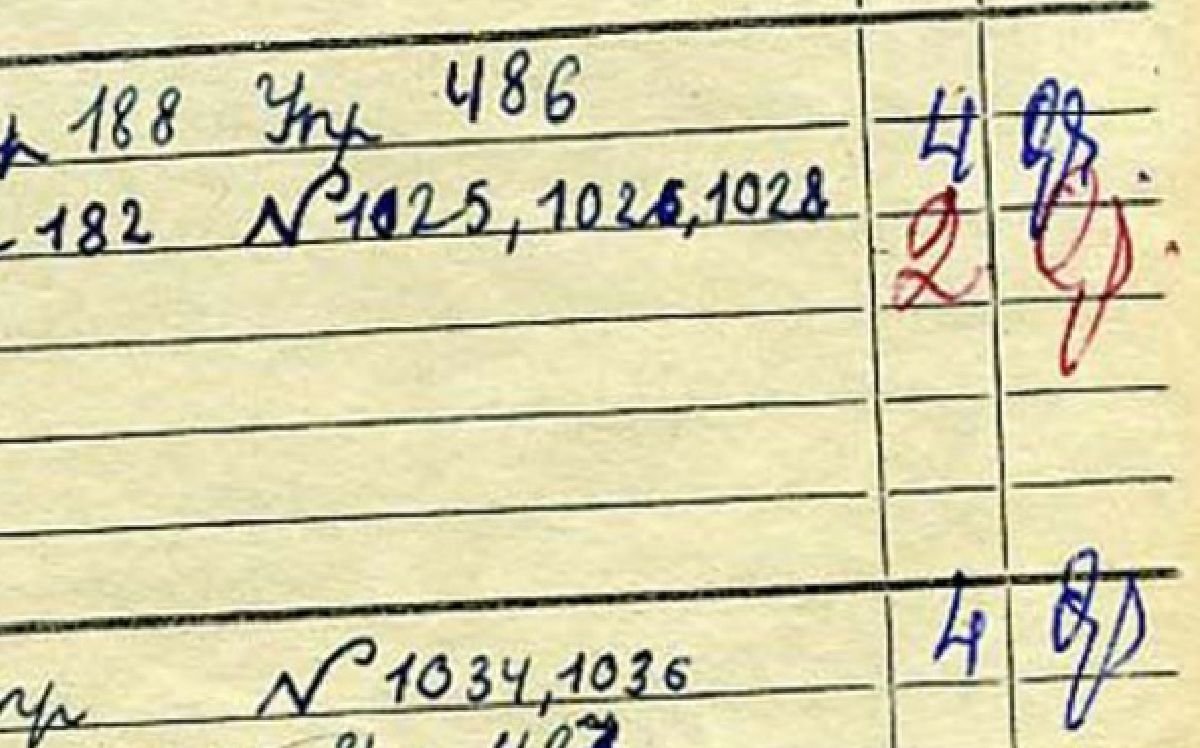 р 188 Упр 486 4
182 N 1025, 1026, 1028 2
N 1034, 1036 4